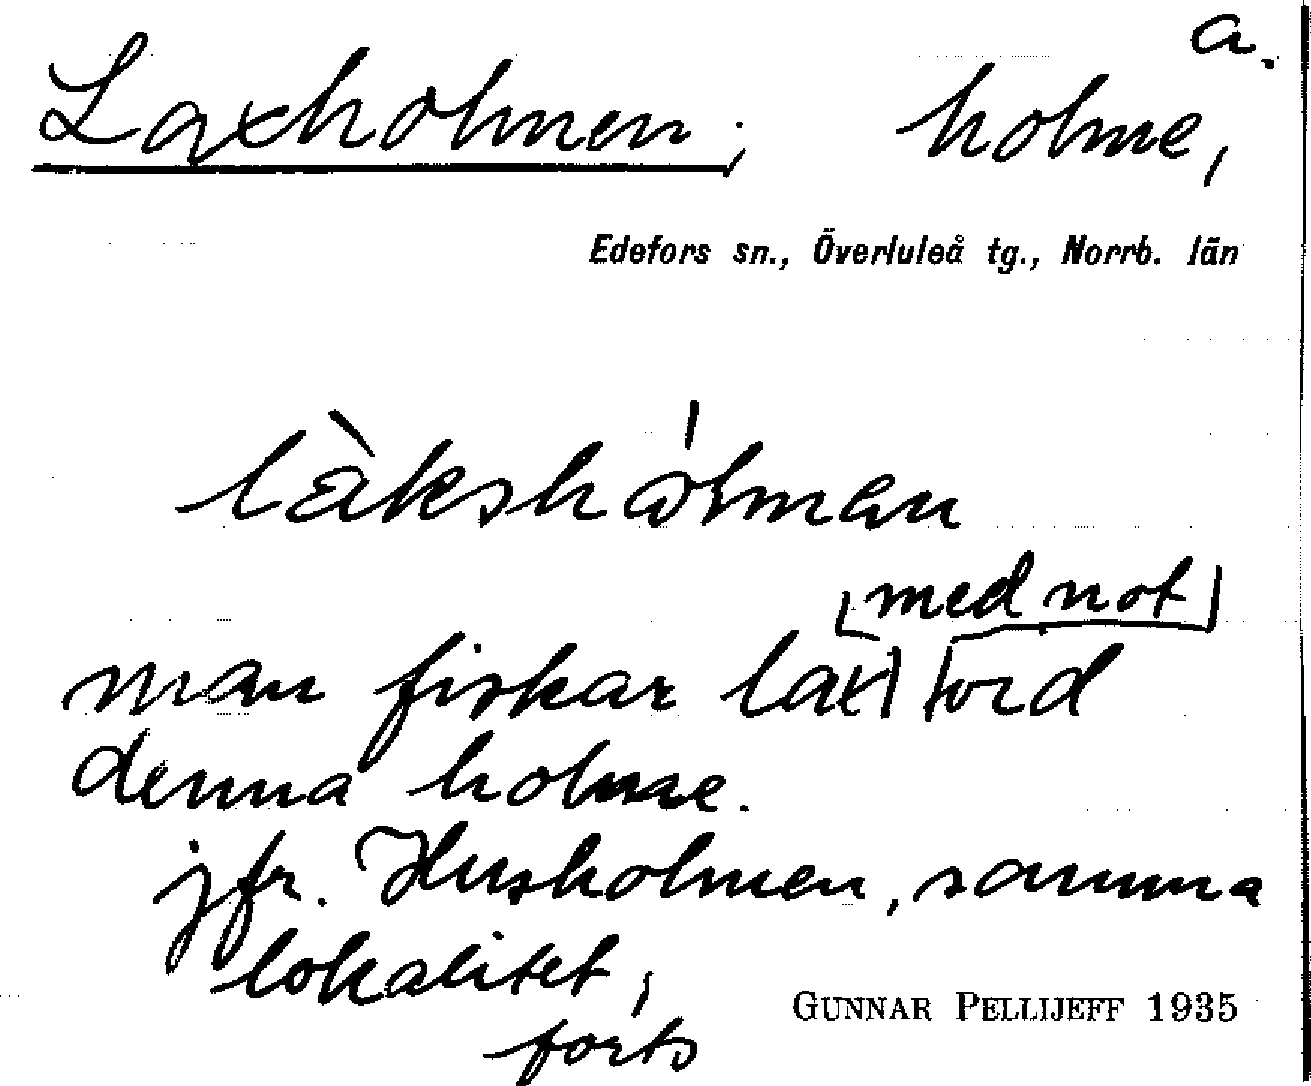 a.
Laxholmen, holme,
Edefors sn., Överluleå tg., Norrb. län
làkshålman
[med not]
man fiskar lax vid
denna holme.
jfr. Husholmen, samma
lokalitet,
forts
GUNNAR PELLIJEFF 1935